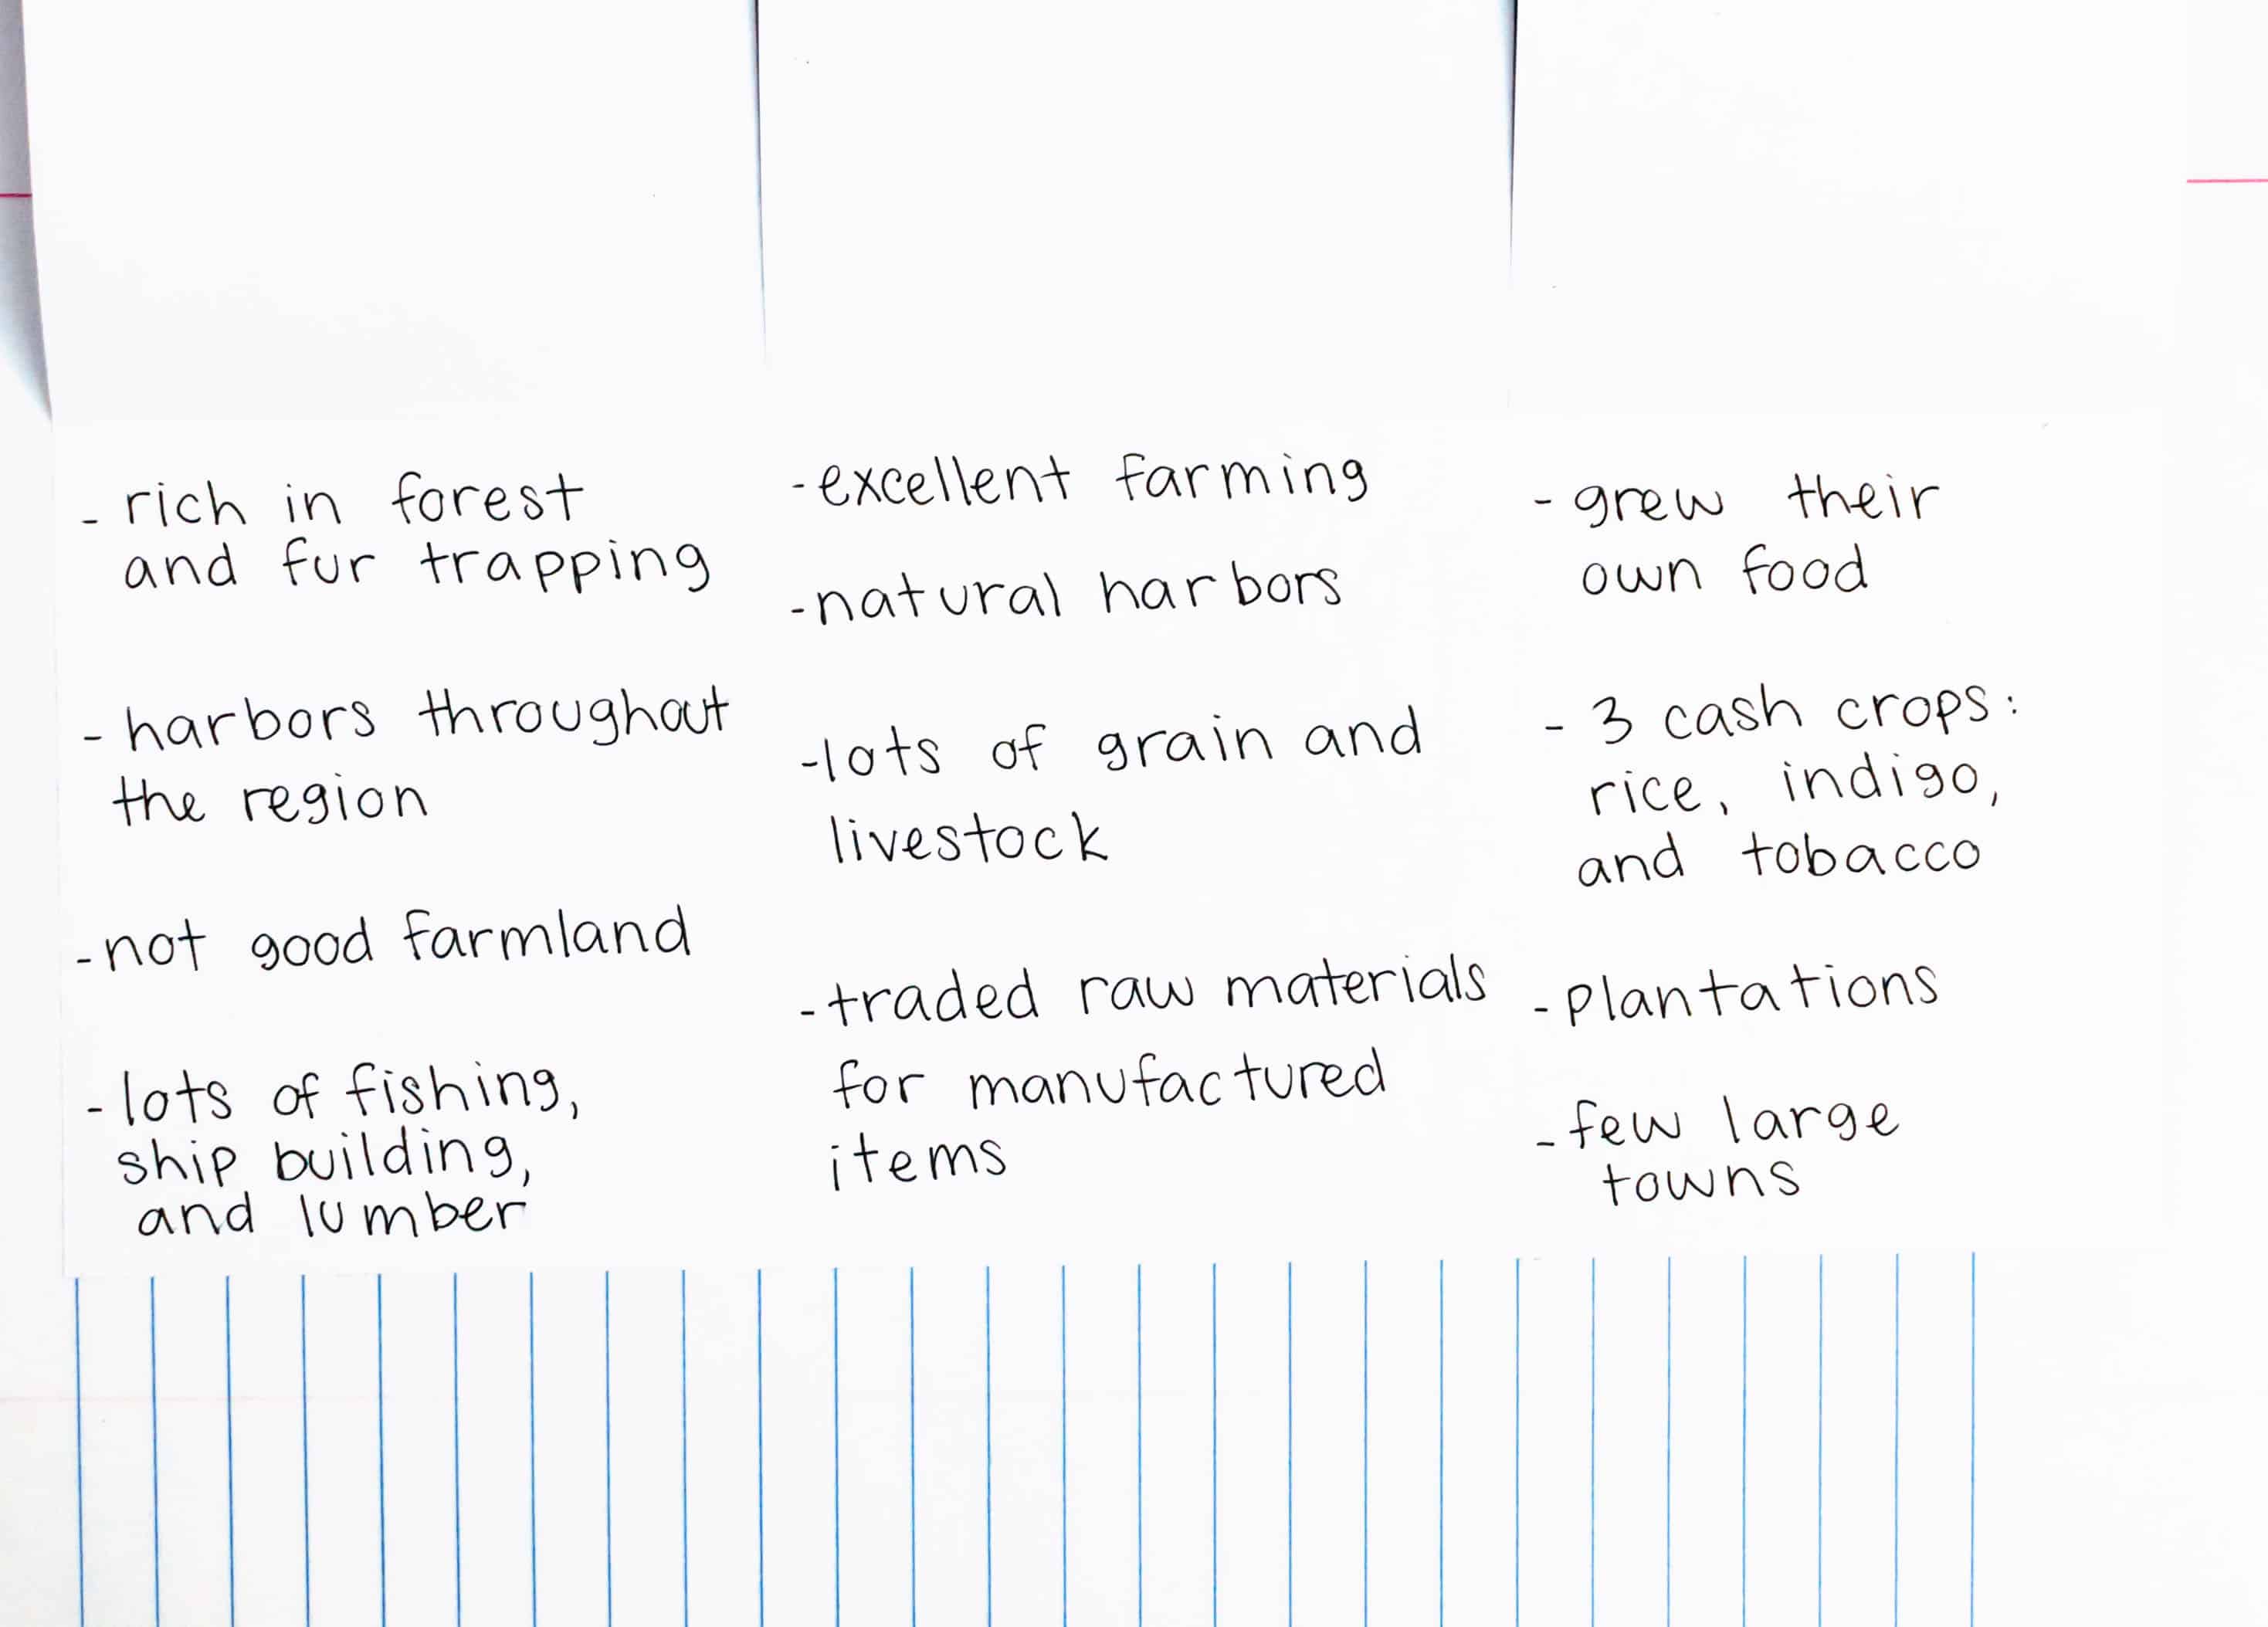 - rich in forest
and fur trapping
- harbors throughout
the region
- not good farmland
- lots of fishing,
ship building,
and lumber
- excellent farming
- natural harbors
- lots of grain and
livestock
- traded raw materials
for manufactured
items
- grew their
own food
- 3 cash crops:
rice, indigo,
and tobacco
- plantations
- few large
towns